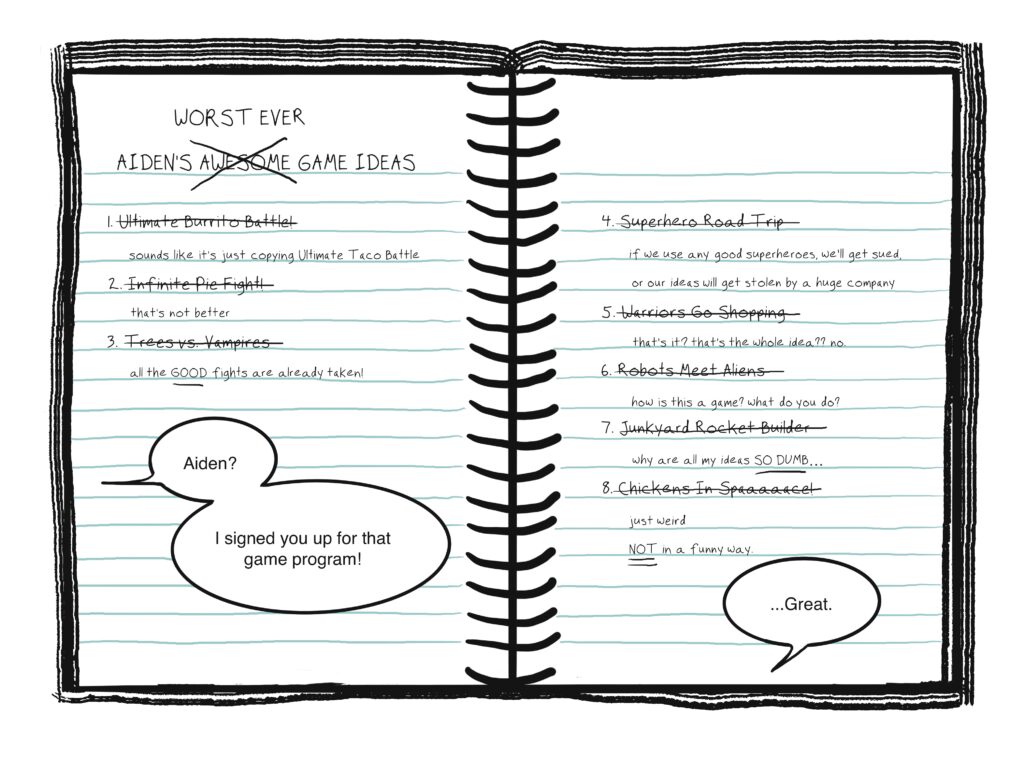 WORST EVER
AIDEN'S AWESOME GAME IDEAS
1. Ultimate Burrito Battle!
sounds like it's just copying Ultimate Taco Battle
2. Infinite Pie Fight!
that's not better
3. Trees vs. Vampires
all the GOOD fights are already taken!
Aiden?
I signed you up for that
game program!
4. Superhero Road Trip
if we use any good superheroes, we'll get sued,
or our ideas will get stolen by a huge company
5. Warriors Go Shopping
that's it? that's the whole idea?? no.
6. Robots Meet Aliens
how is this a game? what do you do?
7. Junkyard Rocket Builder
why are all my ideas SO DUMB...
8. Chickens In Spaaaaace!
just weird
NOT in a funny way.
...Great.